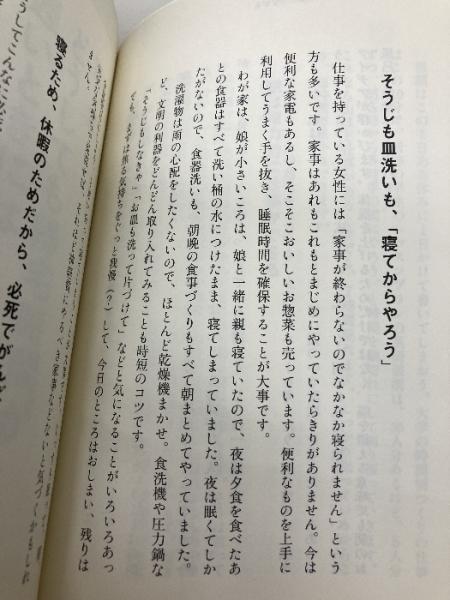 そうじも皿洗いも、「寝てからやろう」
仕事を持っている女性には「家事が終わらないのでなかなか寝られません」という
方も多いです。家事はあれもこれもとまじめにやっていたらきりがありません。今は
便利な家電もあるし、そこそこおいしいお惣菜も売っています。便利なものを上手に
利用してうまく手を抜き、睡眠時間を確保することが大事です。
わが家は、娘が小さいころは、娘と一緒に親も寝ていたので、夜は夕食を食べたあ
との食器はすべて洗い桶の水につけたまま、寝てしまっていました。夜は眠くてしか
たがないので、食器洗いも、朝晩の食事づくりもすべて朝まとめてやっていました。
洗濯物は雨の心配をしたくないので、ほとんど乾燥機まかせ。食洗機や圧力鍋な
ど、文明の利器をどんどん取り入れてみることも時短のコツです。
「そうじもしなきゃ」「お皿も洗って片づけて」などと気になることがいろいろあっ
ても、まずは焦る気持ちをぐっと我慢（？）して、今日のところはおしまい、残りは
寝るため、休暇のためだから、必死でがんば
そうしてこんなに必死